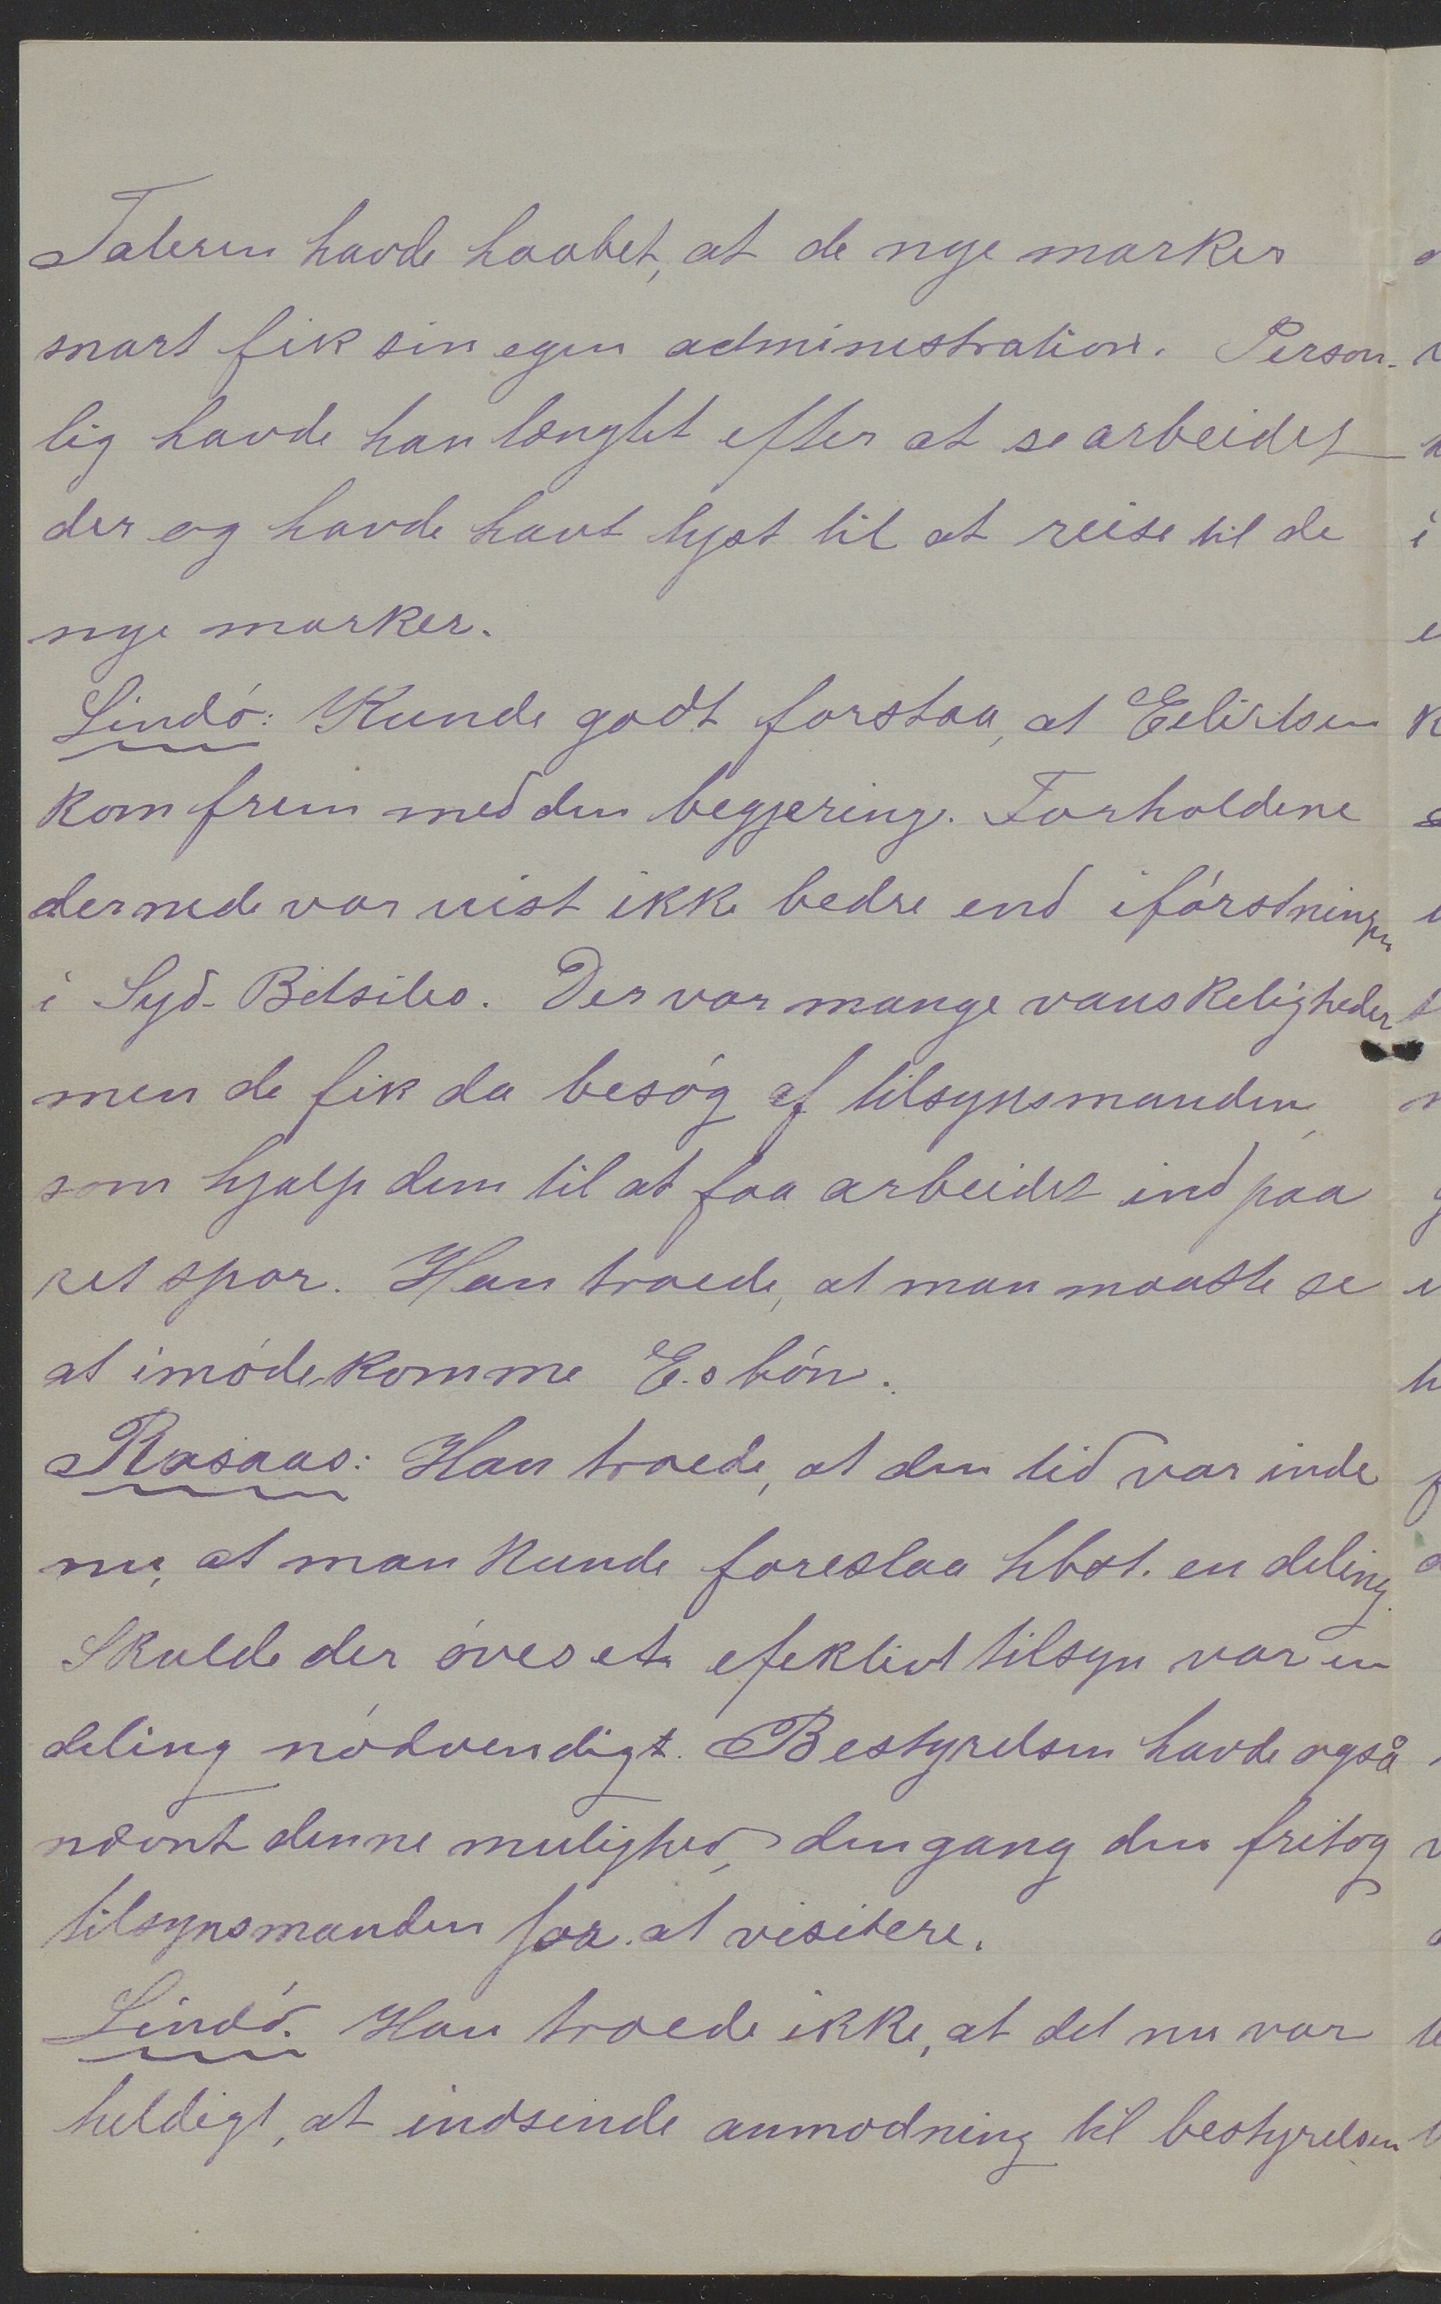 Taleren havde haabet, at de nye marker
snart fik sin egen administration. Person-
lig havde han længtet efter at se arbeidet
der og havde havt lyst til at reise til de
nye marker.
Lindö: Kunde godt forstaa, at Eilertsen
kom frem med den begjering. Forholdene
dernede var vist ikke bedre end iförstningen
i Syd-Betsileo. Der var mange vanskeligheder
men de fik da besög af tilsynsmanden,
som hjalp dem til at faa arbeidet ind paa
ret spor. Han troede, at man maatte se
at imödekomme E.s bön.
Rasaas: Han troede, at den tid var inde
nu, at man kunde foreslaa hbst. en deling.
Skulde der öves et efektivt tilsyn var en
deling nödvendigt. Bestyrelsen havde også
nævnt denne mulighed, dengang den fritog
tilsynsmanden for at visitere.
Lindö. Han troede ikke, at det nu var
heldigt, at indsende anmodning til bestyrelsen